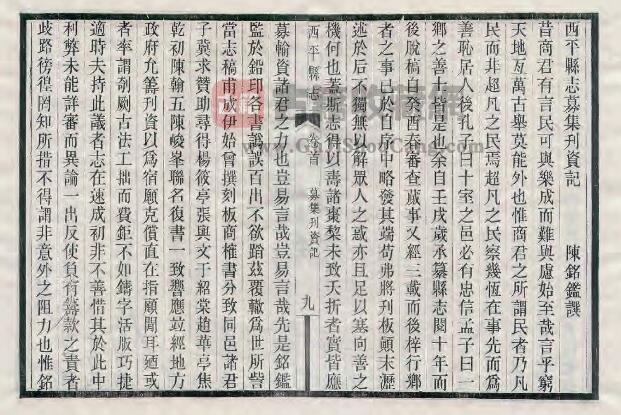 西平縣志募集刊資記　陳銘鑑譔
昔商君有言民可與樂成而難與慮始至哉言乎窮
天地亙萬古舉莫能外也惟商君之所謂民者乃凡
民而非超凡之民焉超凡之民察幾恆在事先而爲
善恥居人後孔子曰十室之邑必有忠信孟子曰一
鄉之善士皆是也余自壬戌歲承纂縣志閱十年而
後脫稿曰癸酉春審查蕆事又經三載而後梓行鄉
者之事已於自序中略發其端茍弗將刋板顚末瀝
述於后不獨無以解眾人之惑亦且足以塞向善之
機何也蓋斯志得以壽諸棗棃未致夭折者實皆應
西平縣志
卷首
募集刊資記
九
募輸資諸君之力也豈易言哉豈易言哉先是銘鑑
監於鉛印各書譌誤百出不欲蹈茲覆轍爲世所訾
當志稿甫成伊始曾撰刻板商榷書分致同邑諸君
子冀求贊助尋得楊筱亭張興文于紹棠趙華亭焦
乾初陳翰五陳峻峯聯名復書一致響應竝經地方
政府允籌刊資以爲宿願克償直在指顧閒耳迺或
者率謂剞劂古法工拙而費鉅不如鑄字活版巧捷
適時夫持此議者志在速成初非不善惜其於此中
利弊未能詳審而異論一出反使負有籌款之責者
歧路徬徨罔知所措不得謂非意外之阻力也惟銘
www.GuJiShouCang.com